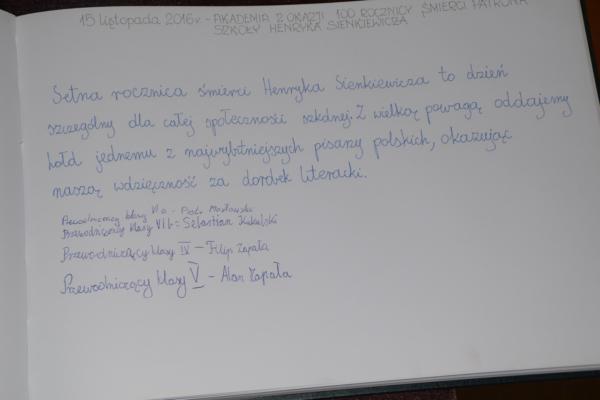 15 listopada 2016r. - AKADEMIA Z OKAZJI 100 ROCZNICY ŚMIERCI PATRONA
SZKOŁY HENRYKA SIENKIEWICZA
Setna rocznica śmierci Henryka Sienkiewicza to dzień
szczególny dla całej społeczności szkolnej. Z wielką powagą oddajemy
hołd jednemu z najwybitniejszych pisarzy polskich, okazując
naszą wdzięczność za dorobek literacki.
Przewodniczący klasy VI a - Piotr
Przewodniczący klasy VI b - Sebastian Kukulski
Przewodniczący klasy IV - Filip Zapała
Przewodniczący klasy V - Alan Zapała